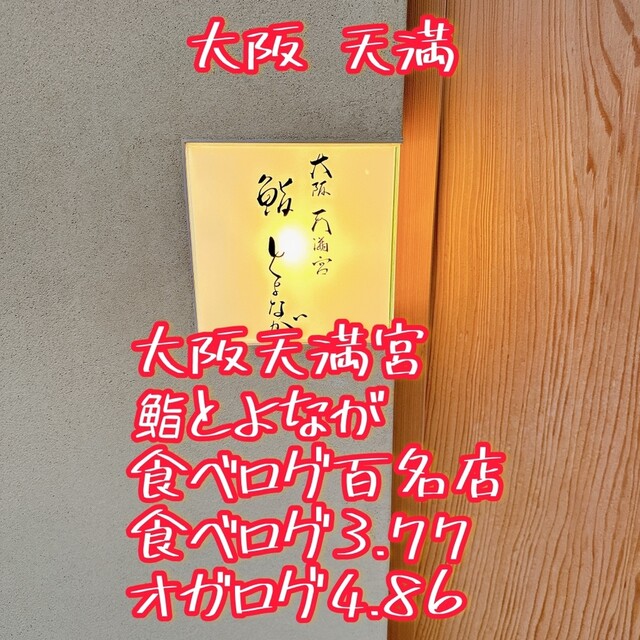 大阪 天満
大阪 天満宮
鮨 とよなが
大阪天満宮
鮨とよなが
食べログ百名店
食べログ3.77
オガログ4.86